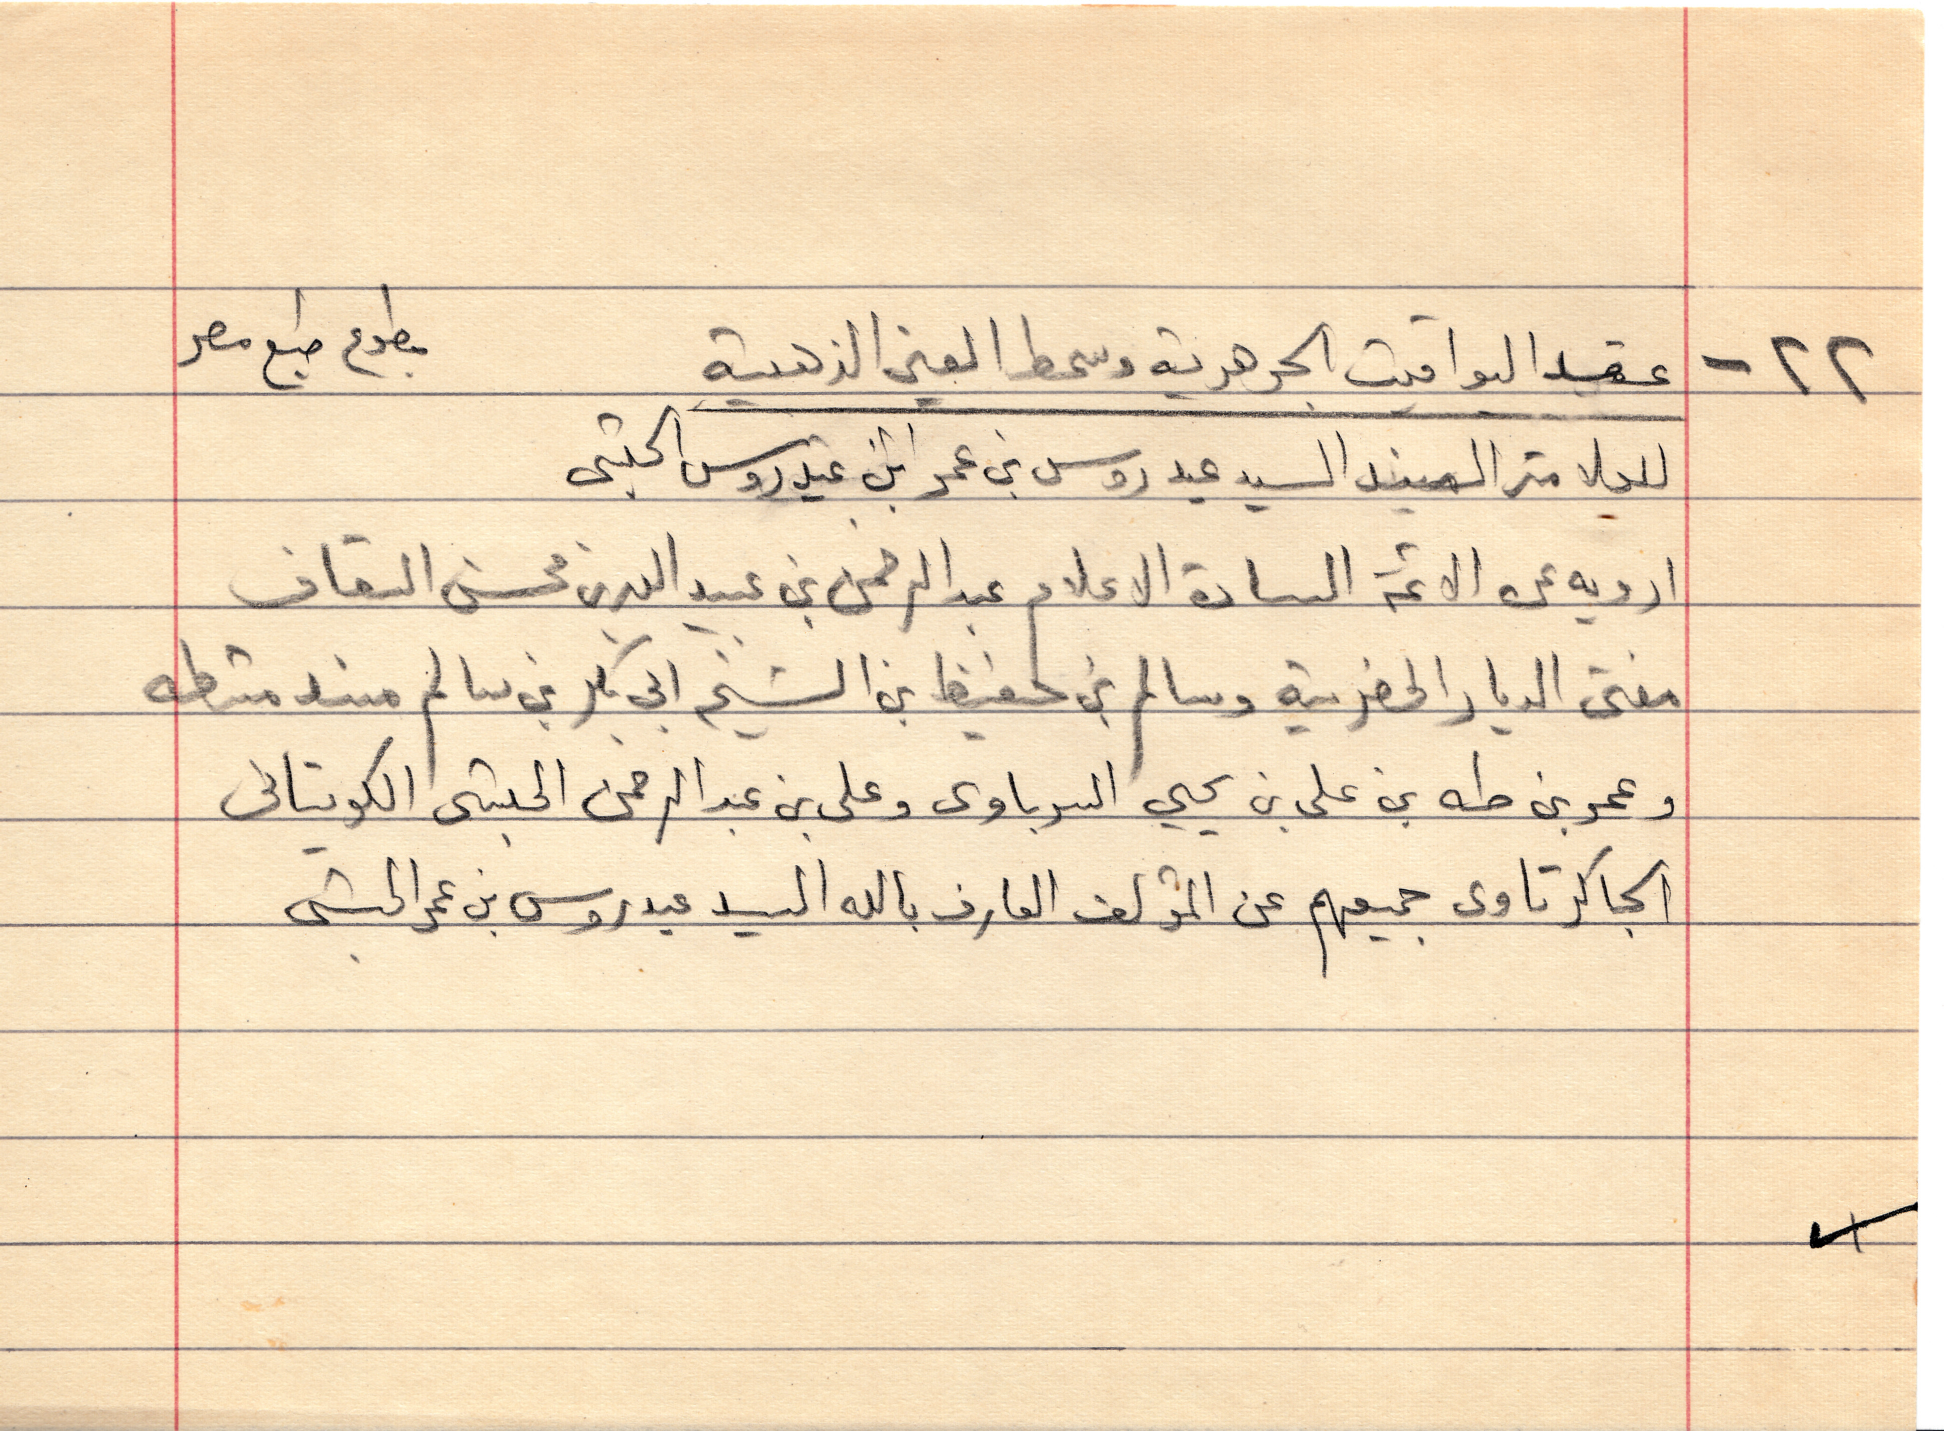 ٢٢ - عقد اليواقيت الجوهرية وسمط العين الذهبية مطبوع طبع مصر
للعلامة المسند السيد عيدروس بن عمر ابن عيدروس الحبشى
ارويه عن الائمة السادة الاعلام عبد الرحمن بن عبيد الله بن محسن السقاف
مفتى الديار الحضرمية وسالم بن حفيظ بن الشيخ ابي بكر بن سالم مسند مشطه
وعمر بن طه بن على بن يحيي السرباوى وعلى بن عبد الرحمن الحبشى الكويتانى
الجاكرتاوى جميعهم عن المؤلف العارف بالله السيد عيدروس بن عمر الحبشى